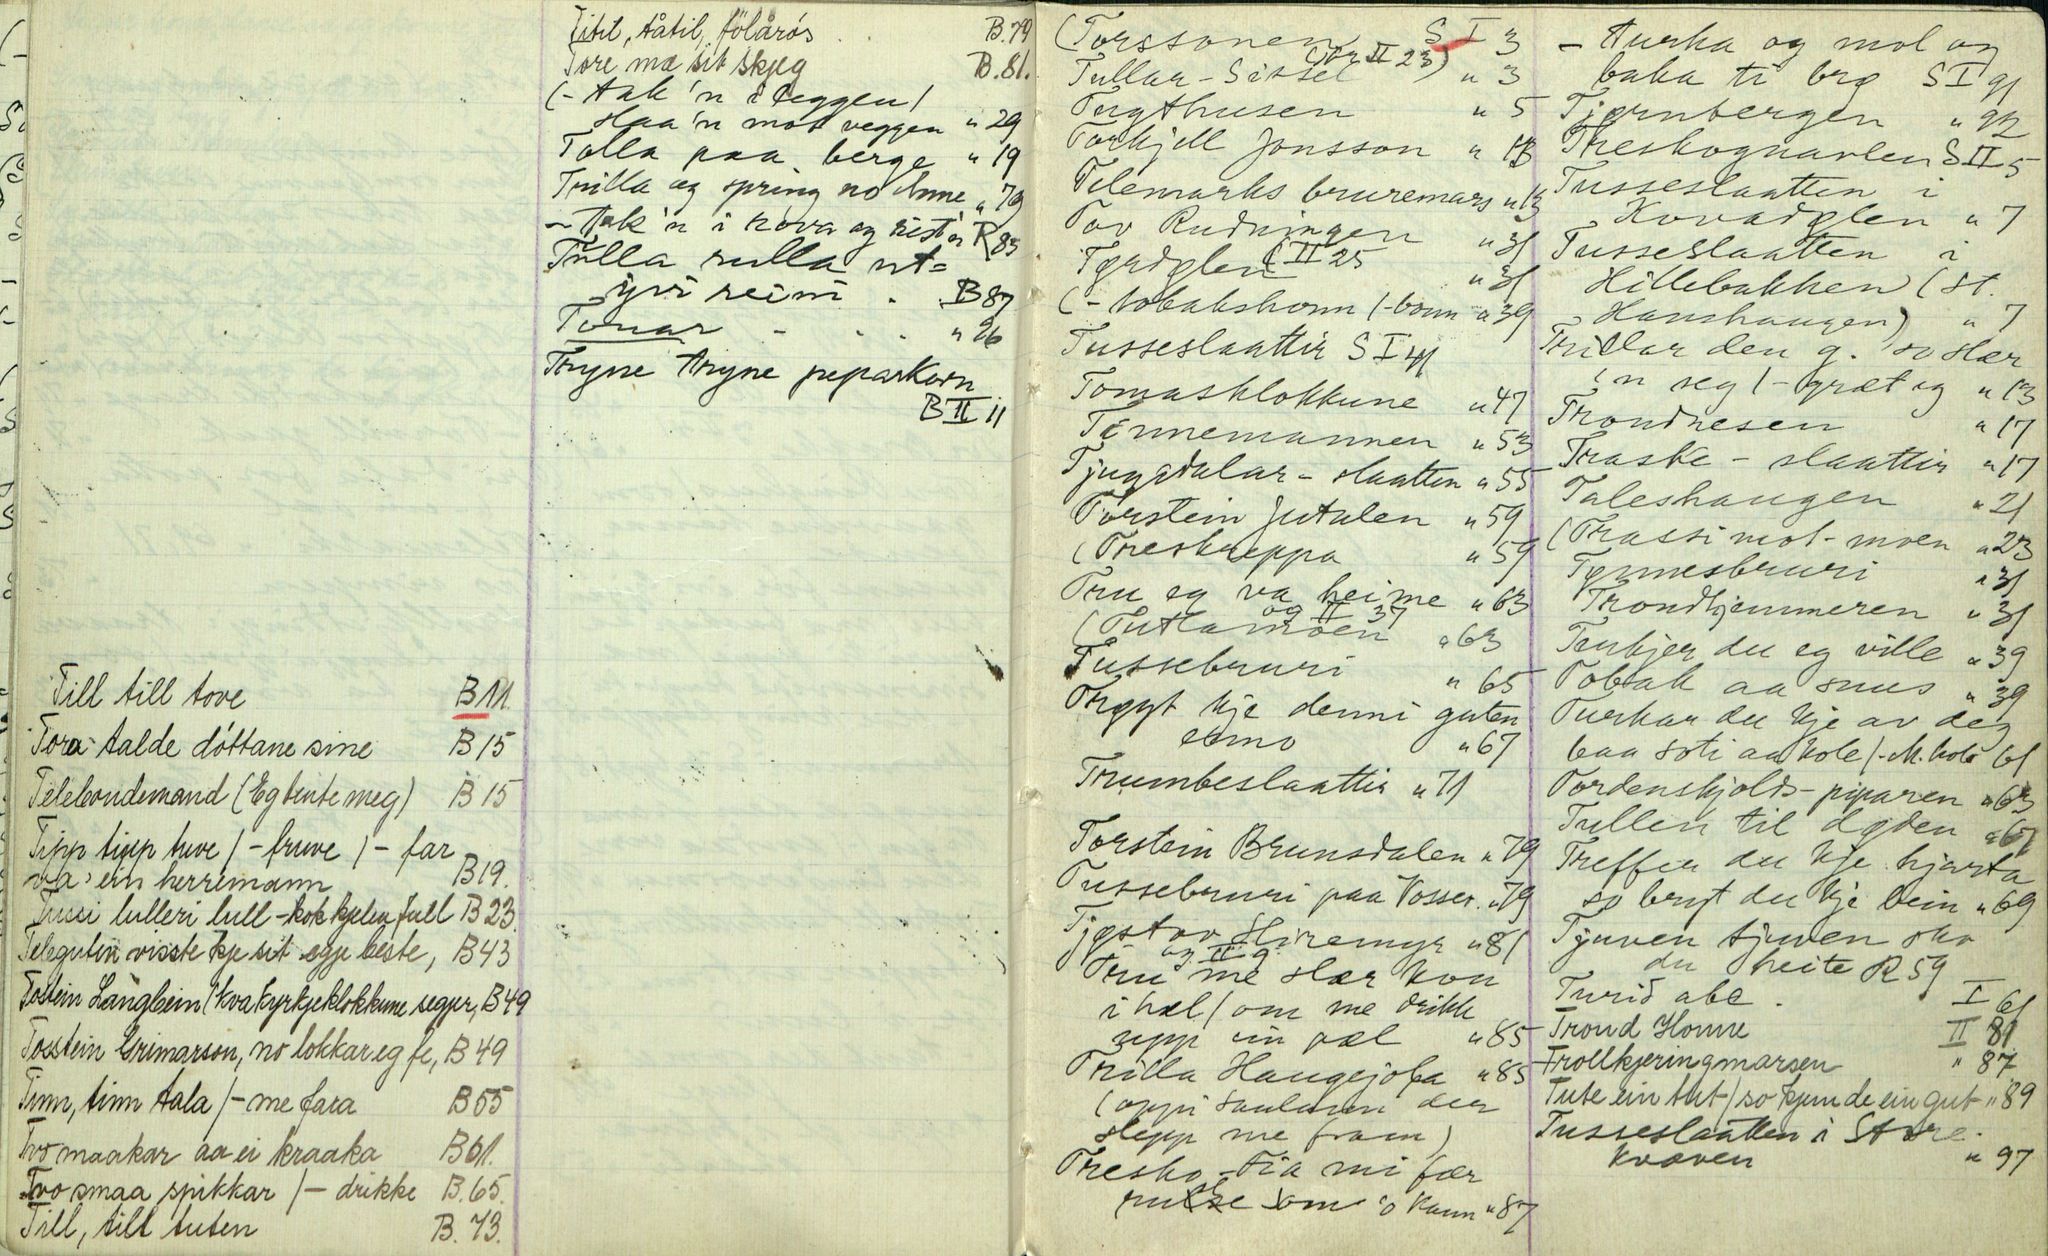 Till till tove B 11.
Tora talde dóttane sine B 15
Telebondemand (Eg tente meg) B 15
Tipp tipp tuve / - fruve / - far
va ein herremann B 19.
Trussi lulleri lull - kok kjelen full B 23.
Telegutin visste kje sit egje beste, B 43
Tostein Langbein (kva kyrkjeklokkune segjer, B 49
Tosstein Grimarson, no lokkar eg fe, B 49
Tinn, tinn tala / - me fara B 55
Tvo maakar aa ei kraaka B 61.
Tvo smaa spikkar / - drikke B. 65.
Till, till tuten B. 73.
Titil, tåtil, tölårós B. 79
Tore mæ sit skjeg B. 81.
(- tak 'n i leggen /
slaa 'n mot veggen " 29
Tolla paa berge " 19
Trilla og spring no Anne " 79
- tak 'n i hova og rist 'n R 83
Tulla rulla ut=
yvi reini . B 87
Tonar - . . . " 26
Tryne tryne peparkorn
B II 11
(Torssonen S I 3
Tullar - Sissel (or II 23) " 3
Tugthusen " 5
Torkjell Jonsson " 13
Telemarks bruremars " 13
Tov Rudningen " 31
Tørdølen (II 25 " 31
(- tobakshonn / - bonn " 39
Tusseslaattir S I 41
Tomasklokkune " 47
Tinnemannen " 53
Tjugedalar - slaatten " 55
Torstein Jutulen " 59
(Treskreppa " 59
Tru eg va heime " 63
og II 37
(Tutlamoen " 63
Tussebruri " 65
Trøyt kje denni guten
eismo " 67
Trumbeslaattir " 71
Torstein Brunsdalen " 79
Tussebruri paa Vosser. " 79
Tjøstov Hiremyr " 81
og II 9
Tru me slær kon
i hæl / om me drikk
upp ein pæl " 85
Trilla Haugejofa " 85
(oppi saulunn der
slepp me fram)
Tresko - Fia mi fær
ruske som 'o kann " 87
- Turka og mol og
baka ti brø S I 91
Tjørnbergen " 92
Treskognarlen S II 5
Tusseslaatten i
Kovadølen " 7
Tusseslaatten i
Hillebakken (St.
Hanshaugen) " 7
Trillar den g. so slær
'n seg / - græt og " 13
Trondnesen " 17
Traske - slaattir " 17
Taleshaugen " 21
(Trassi mot - moen " 23
Tynnesbruri " 31
Trondhjemmeren " 31
Trukjer du eg ville " 39
Tobak aa snus " 39
Turkar du kje av deg
baa soti aa kole / - M. kolo 61
Tordenskjolds - piparen " 63
Tullen til døden " 67
Treffer du kje hjarta
so bryt du kje bein " 69
Tjuven tjuven ska
du heite R 59
Turid abe . I 61
Trond Honne II 81
Trollkjeringmarsen " 87
Tute ein tut / so kjem de ein gut " 89
Tusseslaatten i Store-
kvæven " 97